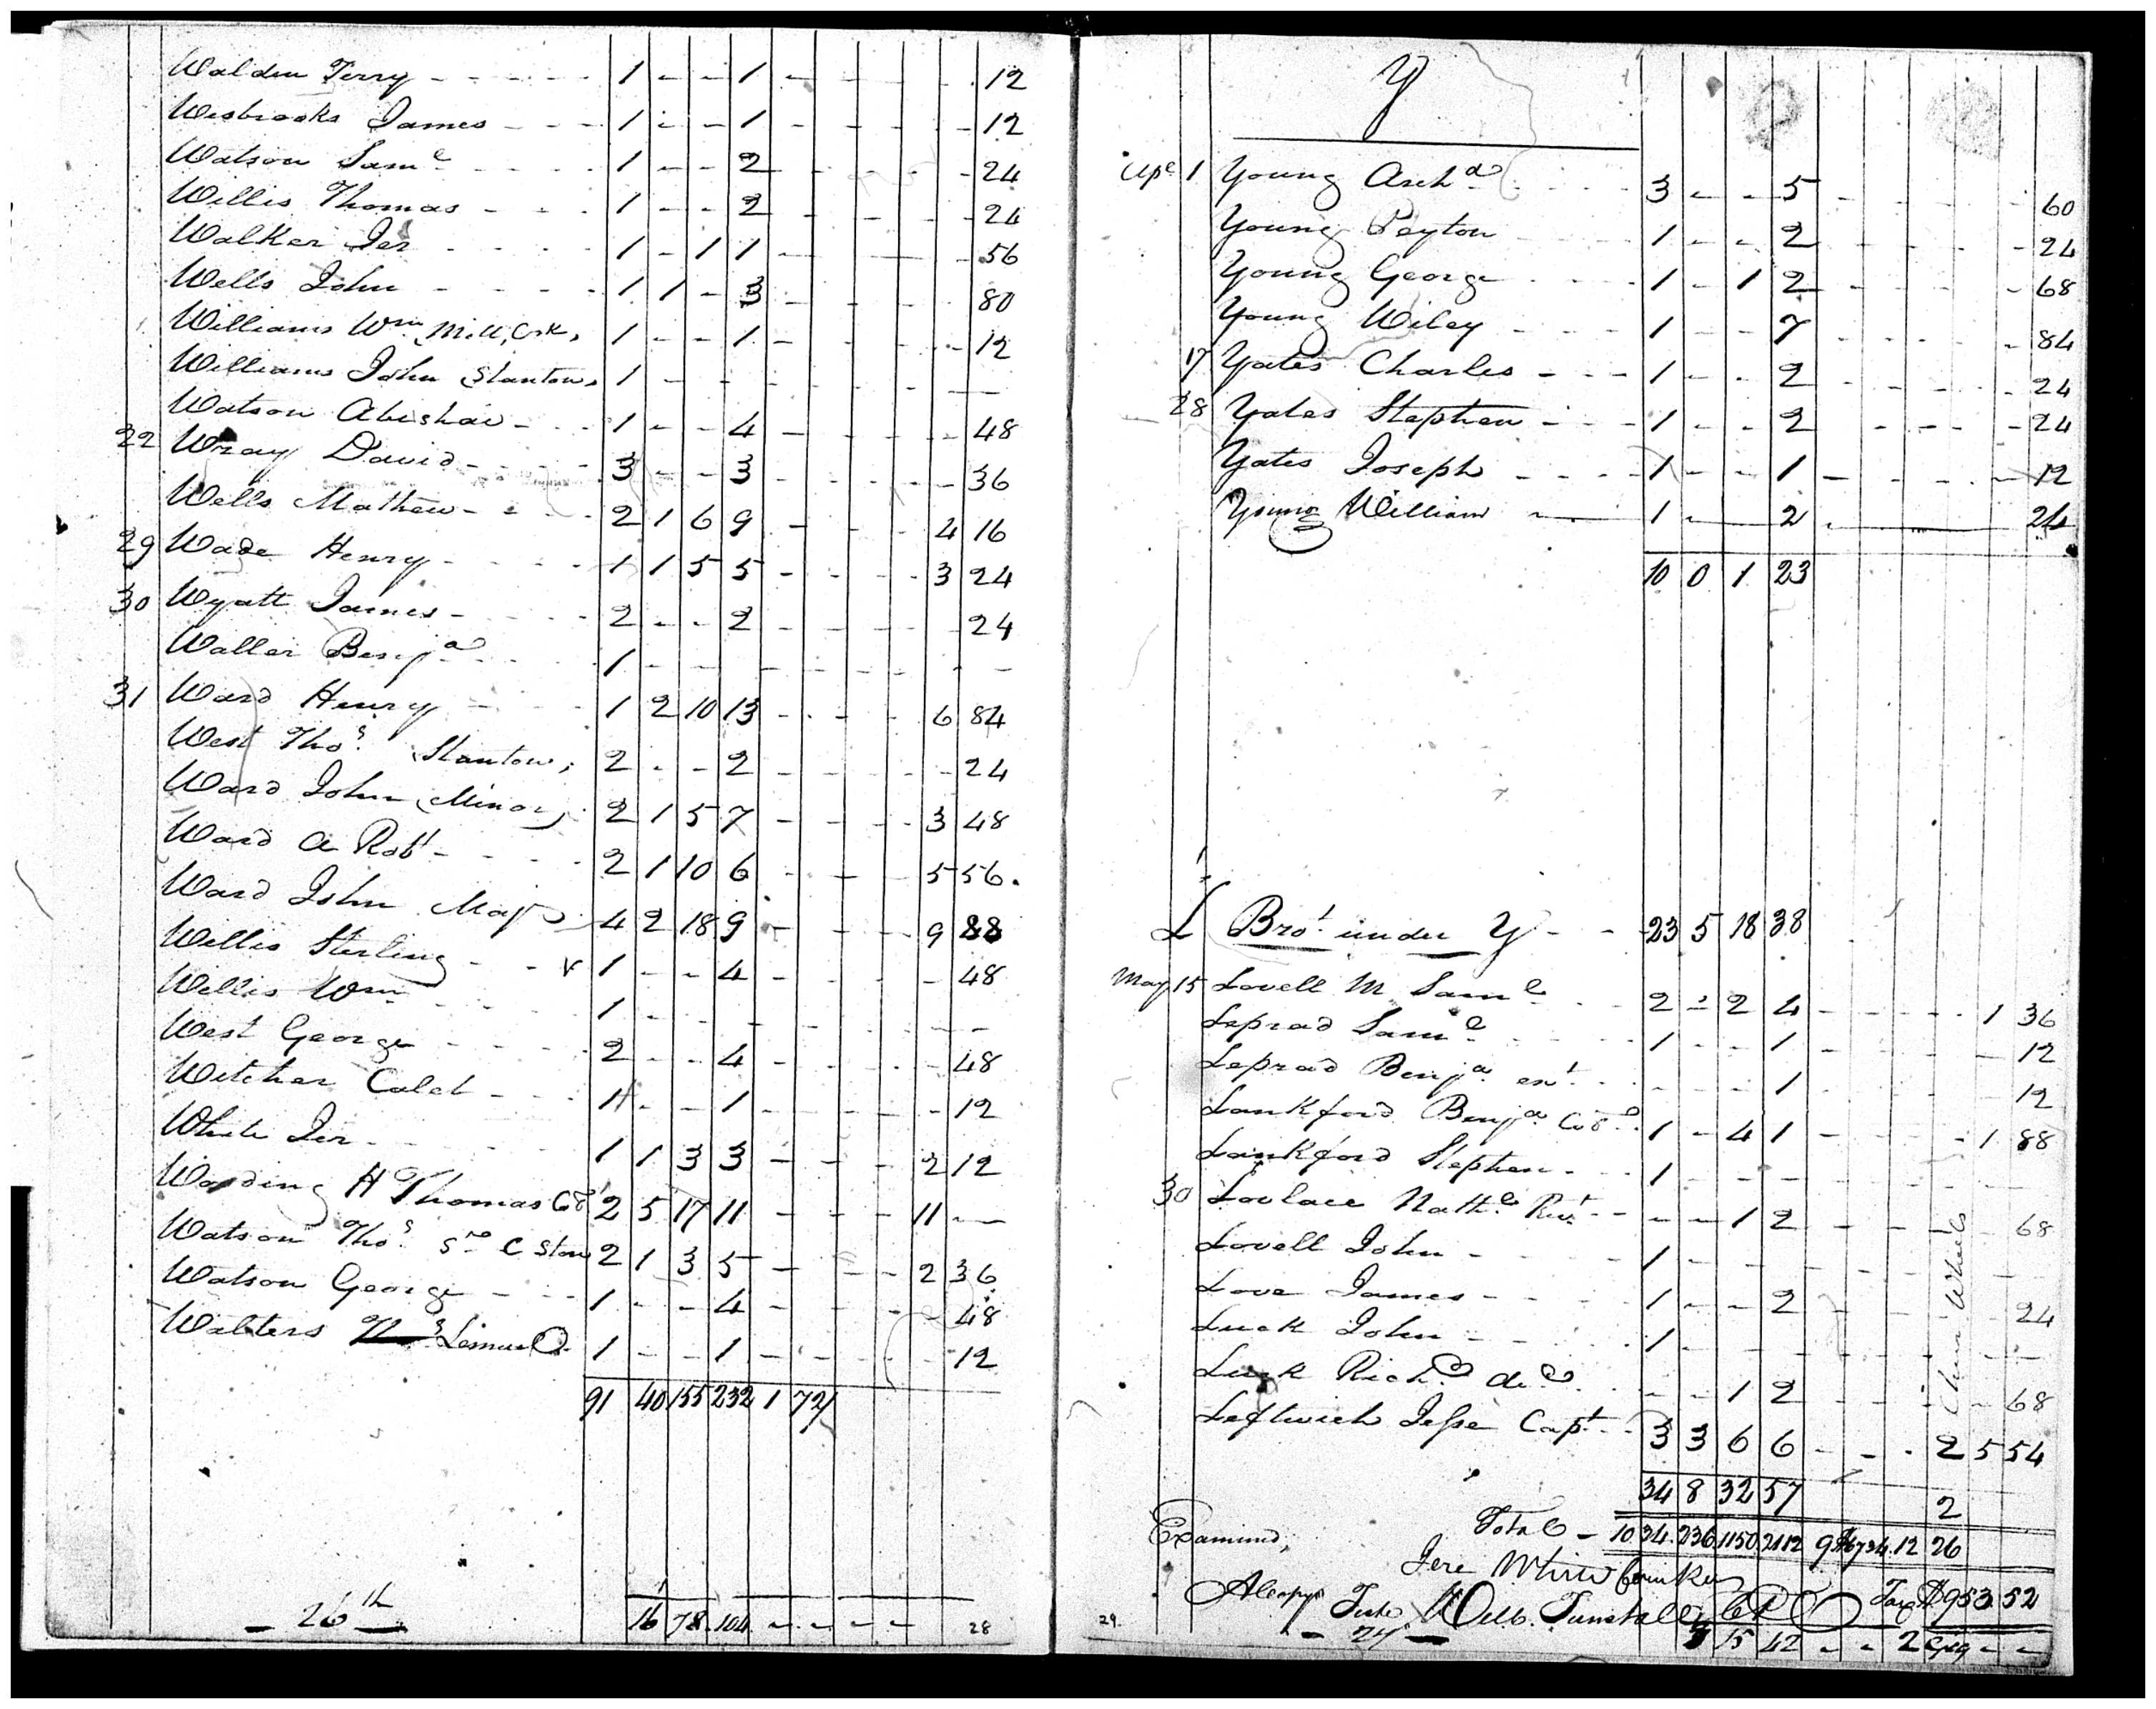 Walden Terry - - - - - 1 - - 1 - - - - 12
Wesbrooks James - - - 1 - - 1 - - - - 12
Watson Saml - - - - 1 - - 2 - - - - 24
Willis Thomas - - - 1 - - 2 - - - - 24
Walker Jer - - - - 1 - 1 1 - - - - 56
Wells John - - - - 1 1 - 3 - - - - 80
Williams Wm Mill, Crk, 1 - - 1 - - - - 12
Williams John Stanton, 1 - - - - - - - -
Watson Abishai - - - 1 - - 4 - - - - 48
22 Wray David - - - - 3 - - 3 - - - - 36
Wells Mathew - - - - 2 1 6 9 - - - 2 16
29 Wade Henry - - - - 1 1 5 5 - - - 3 24
30 Wyatt James - - - - 2 - - 2 - - - - 24
Waller Benja - - - 1 - - - - - - - -
31 Ward Henry - - - 1 2 10 13 - - - 6 84
West Thos. Stanton, 2 - - 2 - - - - 24
Ward John (Minor) 2 1 5 7 - - - 3 48
Ward A Robt - - - - 2 1 10 6 - - - 5 56.
Ward John Majr 4 2 18 9 - - - 9 88
Willis Sterling - - 1 - - 4 - - - - 48
Willis Wm - - - 1 - - - - - - - -
West George - - - - 2 - - 4 - - - - 48
Witcher Caleb - - - 1 - - 1 - - - - 12
White Jer - - - - 1 1 3 3 - - - 2 12
Wooding H Thomas Col 2 5 17 11 - - - 11 - -
Watson Thos. Sr C Ston 2 1 3 5 - - - 2 36
Watson George - - - 1 - - 4 - - - - 48
Walters Lemuel 1 - - 1 - - - - 12
91 40 155 232 1 72
- 26th - 16 78 104 - - - - 28
Y
Apl 1 Young Archd - - - - 3 - - 5 - - - - 60
Young Peyton - - - - 1 - - 2 - - - - 24
Young George - - - 1 - 1 2 - - - - 68
Young Wiley - - - 1 - - 7 - - - - 84
17 Yates Charles - - - 1 - - 2 - - - - 24
28 Yates Stephen - - - 1 - - 2 - - - - 24
Yates Joseph - - - - 1 - - 1 - - - - 12
Young William - 1 - 2 - 24
10 0 1 23
L Brot under Y - - 23 5 18 38
May 15 Lovell M Saml - - 2 - 2 4 - - - - 1 36
Leprad Saml - - - 1 - - 1 - - - - 12
Leprad Benja est. - - - - - 1 - - - - 12
Lankford Benja Cod 1 - 4 1 - - - - 1 88
Lankford Stephen - - 1 - - - - - - - -
30 Lovlace Nathl Rev. - - - - 1 2 - - - - 68
Lovell John - - - 1 - - - - - - - -
Love James - - - - 1 - - 2 - - - - 24
Luck John - - - - 1 - - - - - - - -
Luck Richd decd - - - 1 2 - - - - 68
Leftwich Jesse Capt - - 3 3 6 6 - - - 2 5 54
Wheels
34 8 32 57 2
Total - 1034. 236 1150 2112 12 26
Examined,
Jere White
Tax $953.52
A Copy Teste Will. Tunstall
- 27 - 15 42 - - 2 Gig - -
29.